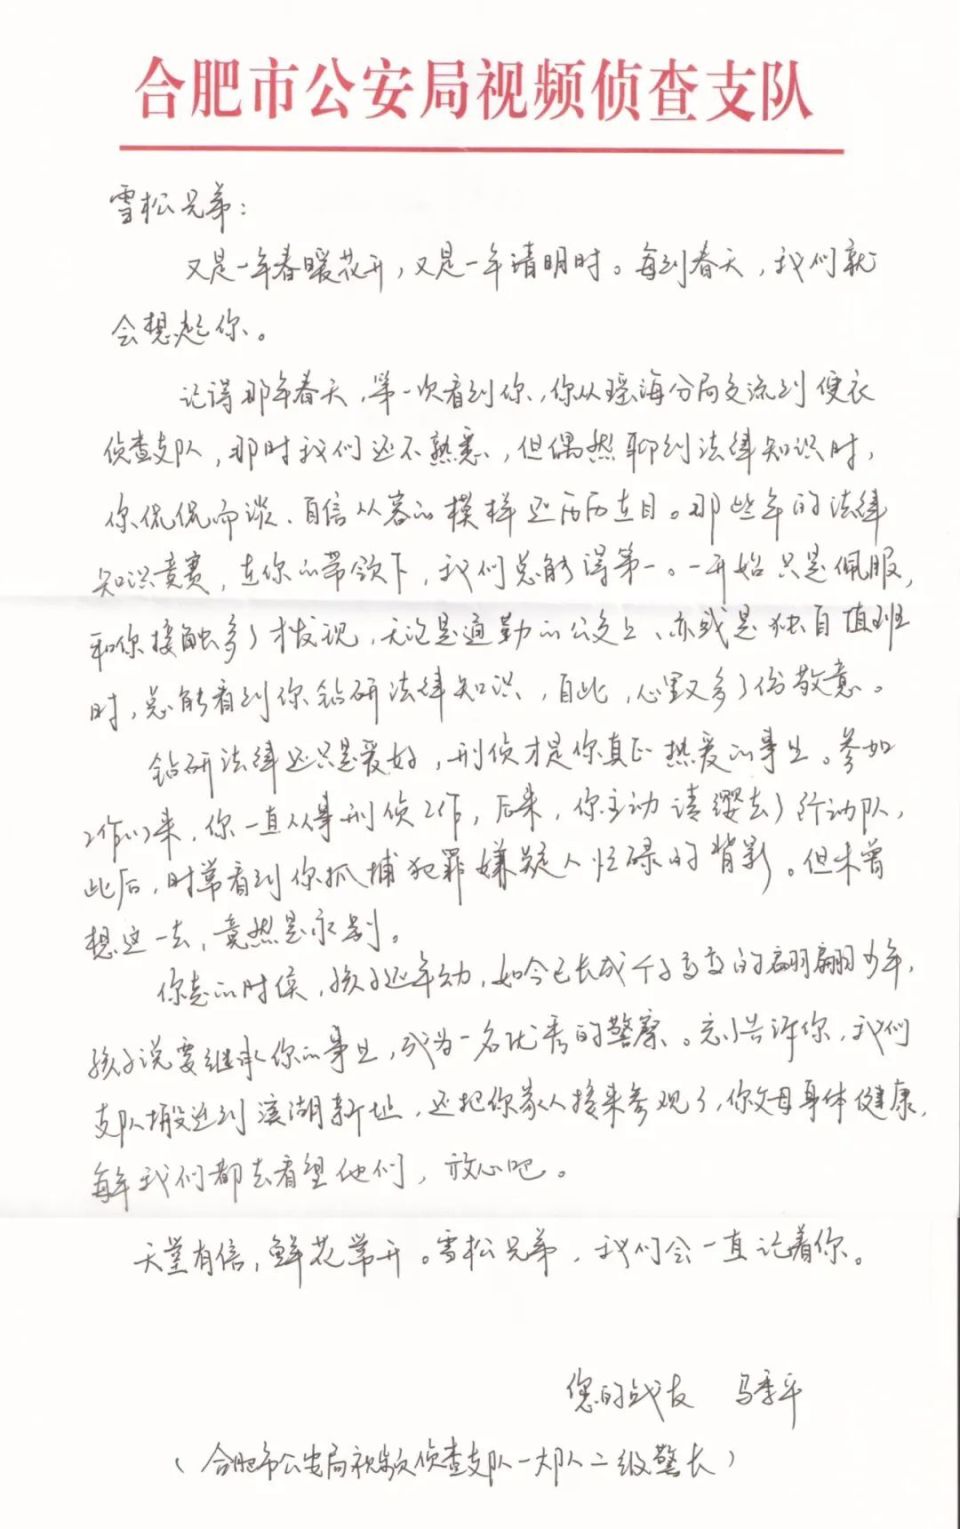 合肥市公安局视频侦查支队
雪松兄弟：
又是一年春暖花开，又是一年清明时。每到春天，我们就
会想起你。
记得那年春天，第一次看到你，你从瑶海分局交流到便衣
侦查支队，那时我们还不熟悉，但偶然聊到法律知识时，
你侃侃而谈、自信从容的模样还历历在目。那些年的法律
知识竞赛，在你的带领下，我们总能得第一。一开始只是佩服，
和你接触多了才发现，无论是通勤的公交上、亦或是独自值班
时，总能看到你钻研法律知识，自此，心里又多了份敬意。
钻研法律还只是爱好，刑侦才是你真正热爱的事业。参加
工作以来，你一直从事刑侦工作，后来，你主动请缨去了行动队，
此后，时常看到你抓捕犯罪嫌疑人忙碌的背影。但未曾
想这一去，竟然是永别。
你走的时候，孩子还年幼，如今已长成个子高高的翩翩少年，
孩子说要继承你的事业，成为一名优秀的警察。忘了告诉你，我们
支队搬迁到滨湖新址，还把你家人接来参观了，你父母身体健康，
每年我们都去看望他们，放心吧。
天堂有信，鲜花常开。雪松兄弟，我们会一直记着你。
您的战友 马季平
（合肥市公安局视频侦查支队一大队二级警长）